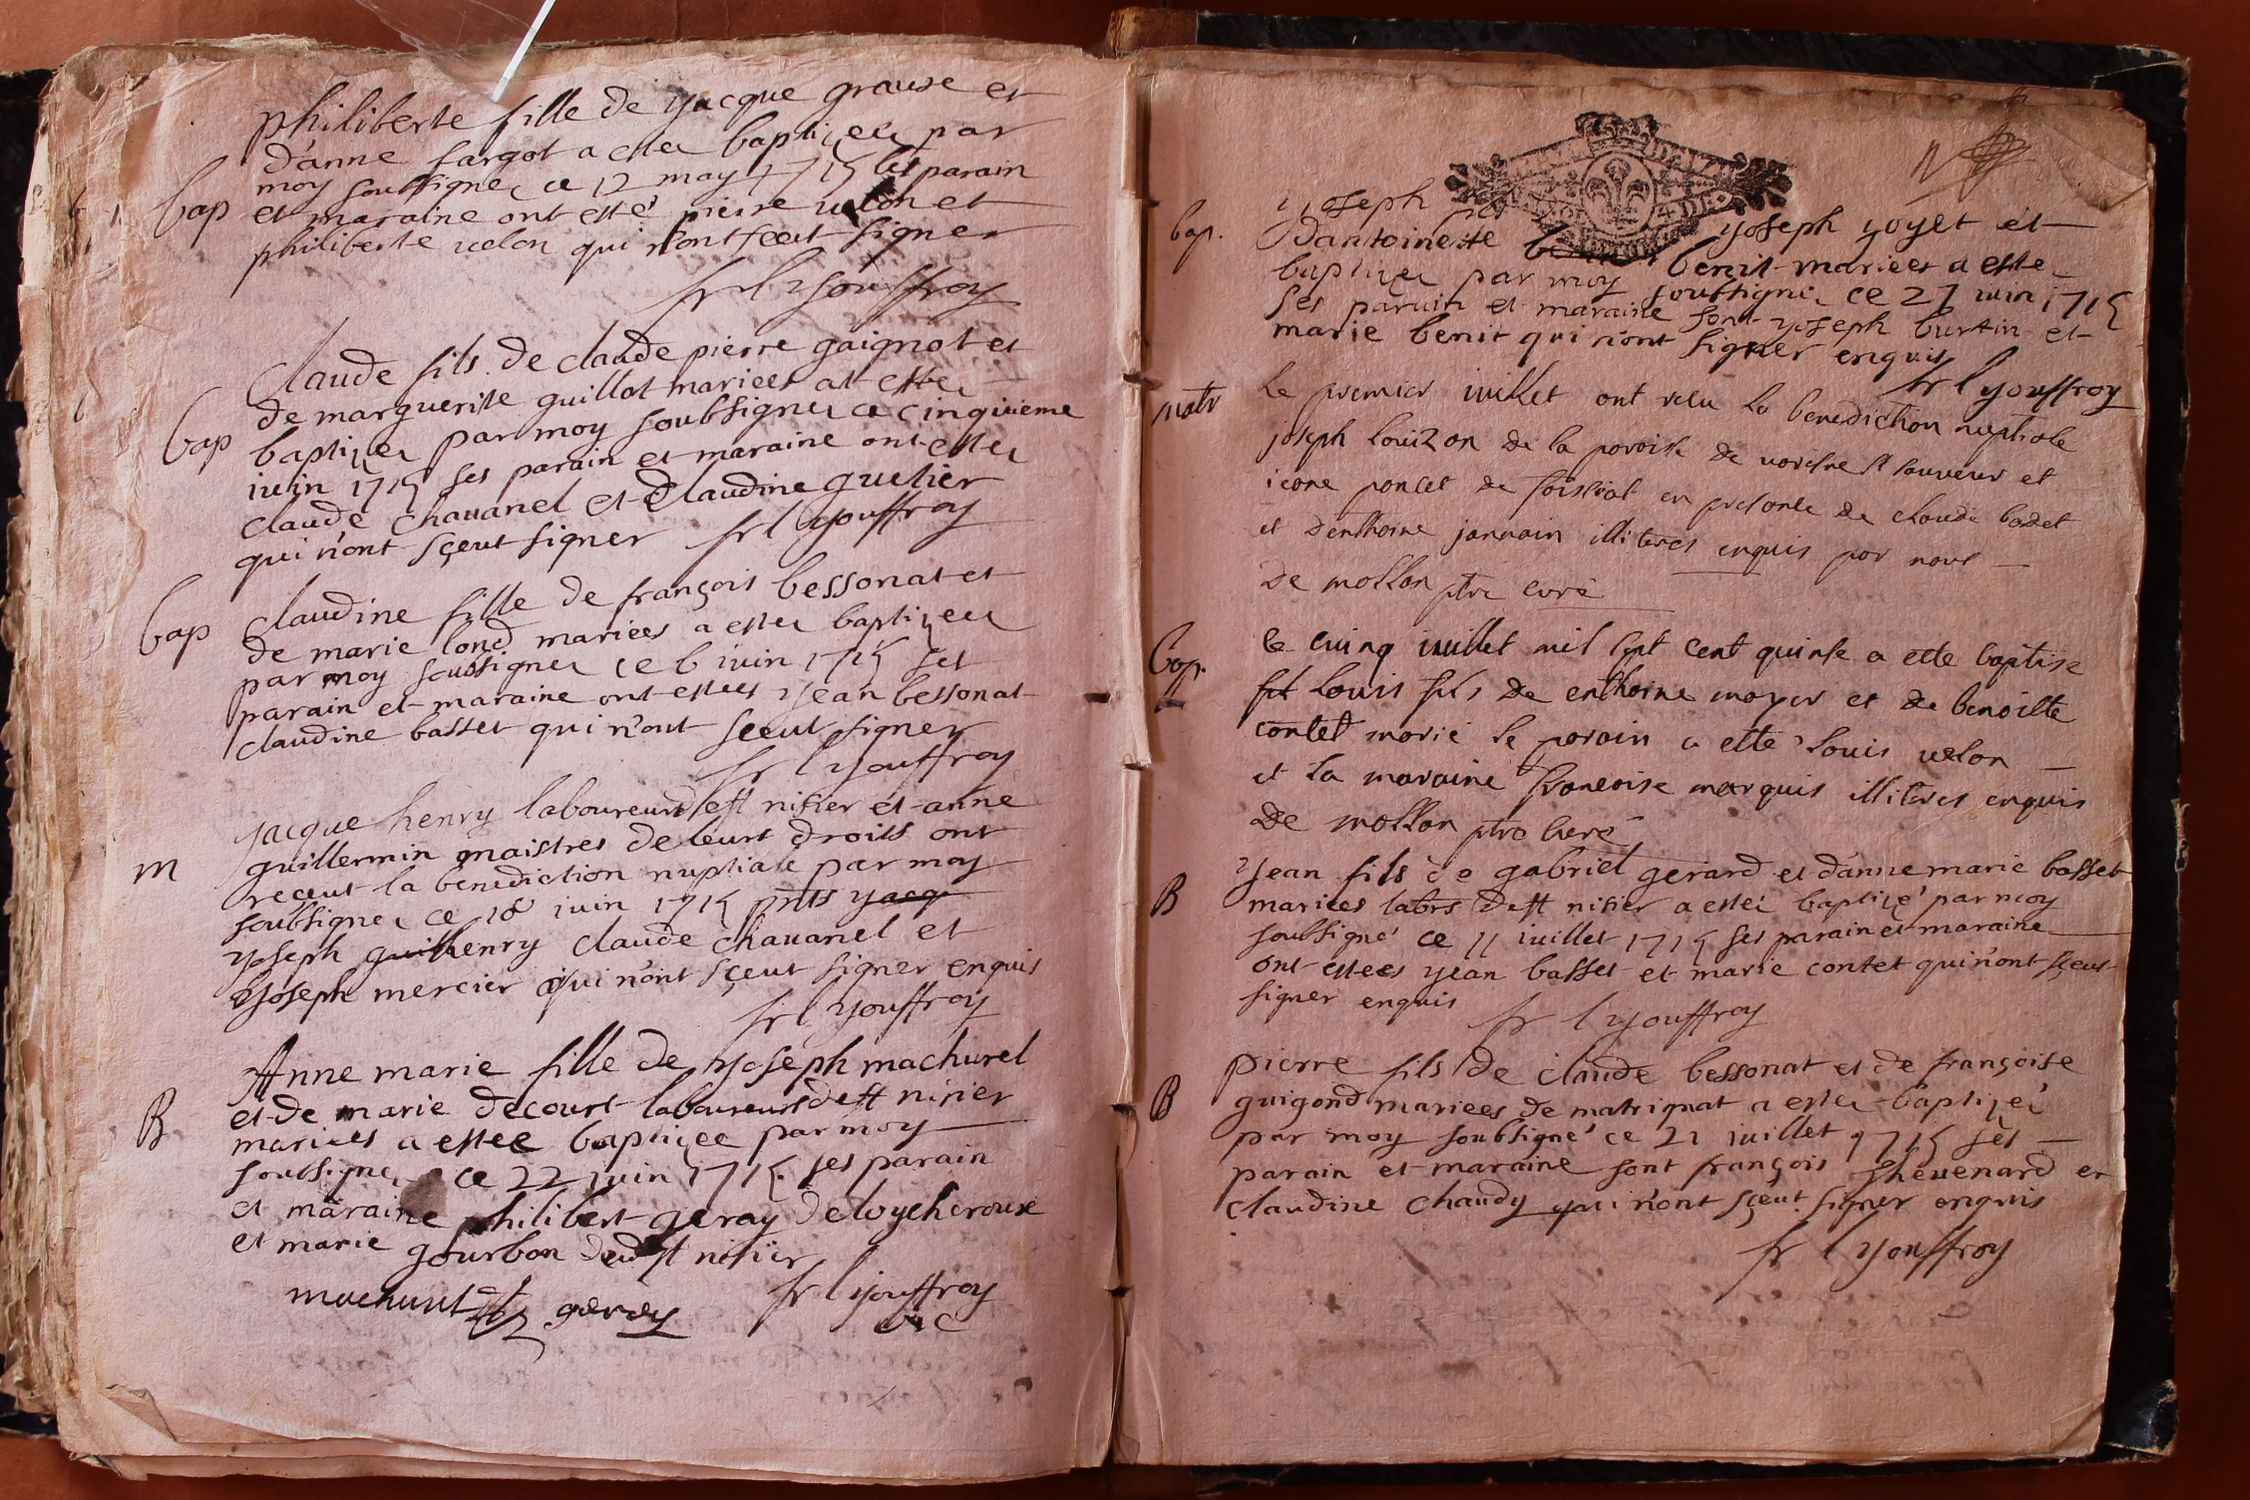 philiberte fille de yacque grause et
d'anne fargot a estee baptizee par
moy soubsigne ce 12 may 1715 les parain
bap
et maraine ont esté pierre uelon et
philiberte uelon qui n'ont sceut signer
fr l youffroy
Claude fils de claude pierre gaignot et
de marguerite guillot mariees at este
bap
baptize par moy soubsigne ce cinquieme
iuin 1715 ses parain et maraine ont estee
claude chauanel et claudine quetier
qui n'ont sçeut signer fr l youffroy
bap
claudine fille de françois bessonat et
de marie lond mariees a estee baptizee
par moy soubsigne ce 6 iuin 1715 ses
parain et maraine ont estees yean bessonat
claudine basset qui n'ont sceut signer
fr l youffroy
yacque henry laboureurs de st nisier et anne
m
guillermin maistres de leurs droits ont
receut la benediction nuptiale par moy
soubsigne ce 18 iuin 1715 pnts yacq
yoseph guilhenry claude chauanel et
yoseph mercier qui n'ont sçeut signer enquis
fr l youffroy
Anne marie fille de yoseph machurel
et de marie decourt laboureurs de st nisier
B
mariees a estee baptizee par moy
soubsigne ce 22 iuin 1715 ses parain
et maraine philibert geray de
et marie gourbon dud st nisier
geray fr l youffroy
vic
yoseph yoseph yoyet et
bap.
d'antoinette benit mariees a este
baptizee par moy soubsigne ce 27 iuin 1715
ses parain et maraine sont yoseph burtin et
marie benit qui n'ont signer enquis
fr l youffroy
le premier iuillet ont recu la benediction nuptiale
joseph louizon de la paroisse de st sauveur et
poncet de foissiat en presence de claude badet
et d'enthoine januain illiteres enquis par nous
de mollon ptre curé
bap.
le cinq iuillet mil sept cent quinse a esté baptise
louis fils de enthoine moyer et de benoiste
contet marié le parain a esté louis uelon
et la maraine francoise marquis illiteres enquis
de mollon ptre curé
yean fils de gabriel gerard et d'anne marie basset
B
mariees labrs de st nisier a estee baptizé par moy
soubsigné ce 11 iuillet 1715 ses parain et maraine
ont estees yean basset et marie contet qui n'ont sçeut
signer enquis fr l youffroy
pierre fils de claude bessonat et de françoise
B
guigond mariees de matrignat a estee baptizé
par moy soubsigné ce 21 iuillet 1715 ses
parain et maraine sont françois theuenard et
claudine chaudy qui n'ont sçeut signer enquis
fr l youffroy